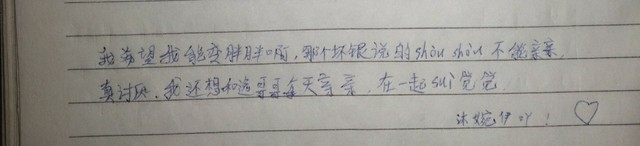 我希望我能变胖胖啊，那个坏银说的shòu shòu不能亲亲，
真讨厌，我还想和这哥哥每天亲亲，在一起sui觉觉
沐婉伊吖！♡